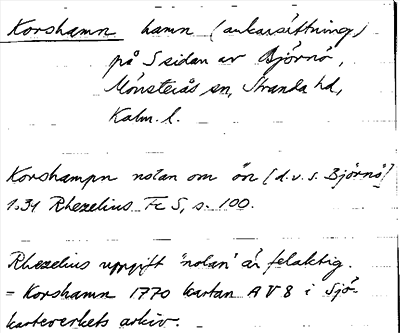 Korshamn hamn (ankarsittning)
på S sidan av Björnö,
Mönsterås sn, Stranda hd,
Kalm. l.
Korshampn nolan om ön [d.v.s. Björnö]
1634 Rhezelius Fc 5, s. 100.
Rhezelius uppgift 'nolan' är felaktig.
= Korshamn 1770 kartan A V 8 i Sjö-
karteverkets arkiv.